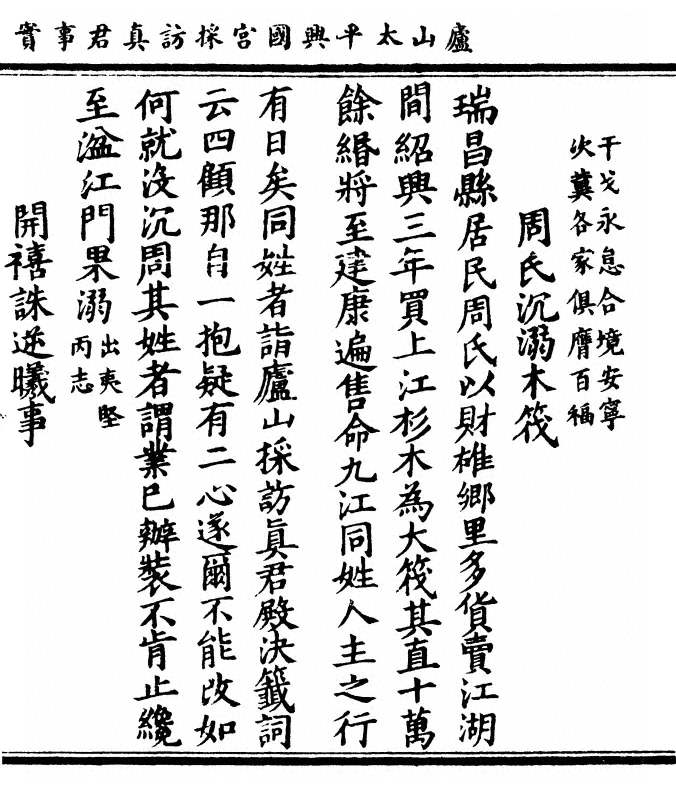 廬山太平興國宮採訪真君事實
干戈永息合境安寧
次冀各家俱膺百福
周氏沉溺木筏
瑞昌縣居民周氏以財雄鄉里多貨賣江湖
間紹興三年買上江杉木為大筏其直十萬
餘緡將至建康遍售命九江同姓人主之行
有日矣同姓者詣廬山採訪真君殿決籤詞
云四顧那自一抱疑有二心遂爾不能改如
何就没沉周其姓者謂業已辦裝不肯止纔
至湓江門果溺出夷堅
丙志
開禧誅逆曦事